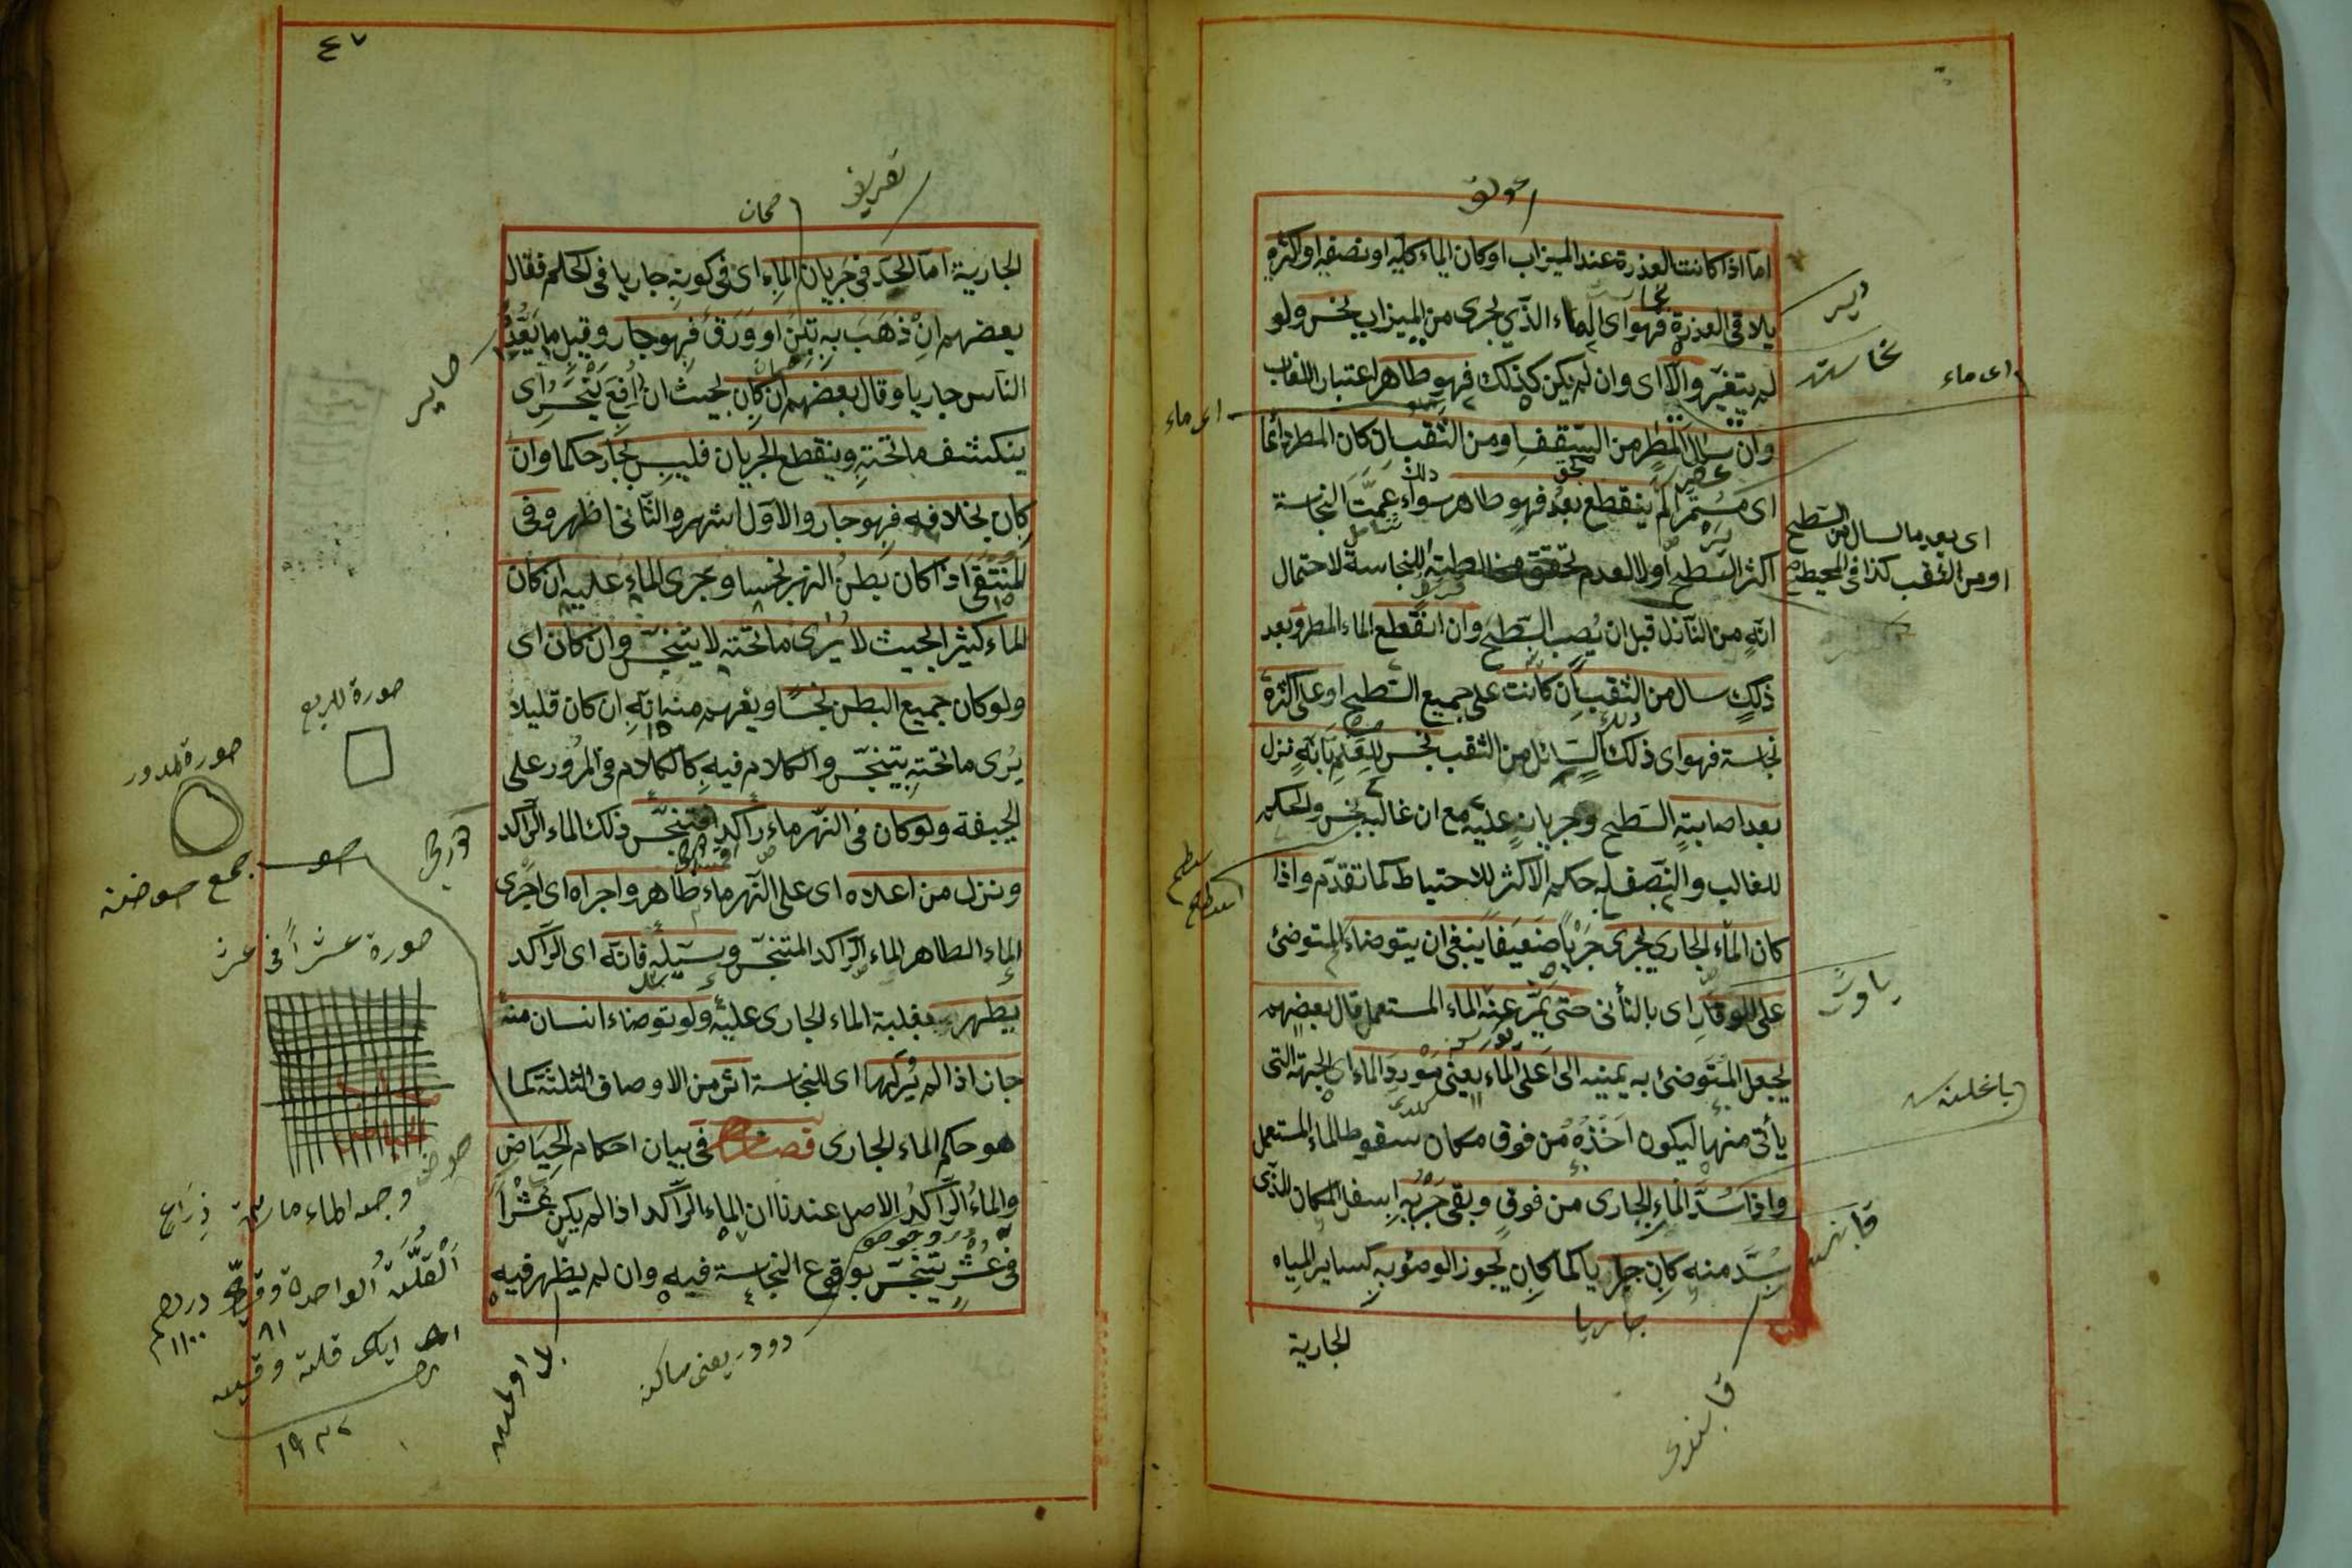 اما اذا كانت العذرة عند الميزاب او كان الماء كله او نصفه او اكثره
يلاقي العذرة فهو اى الماء الذي يجرى من الميزاب نجس ولو
لم يتغير والا اى وان لم يكن كذلك فهو طاهر اعتبار اللغالب
وان سال المطر من السقف او من الثقب ان كان المطر دائما
اى مستمرا لم ينقطع بعد فهو طاهر سواء عمت النجاسة
اكثر السطح اولا لعدم تحقق مخالطته للنجاسة لاحتمال
انه من النازل قبل ان يصب السطح وان انقطع الماء المطر وبعد
ذلك سال من الثقب ان كانت على جميع السطح او على اكثره
نجاسة فهو اى ذلك السائل من الثقب نجس للعلم بانه نزل
بعد اصابته السطح وجريانه عليه مع ان غالبه نجس والحكم
للغالب والنصف له حكم الاكثر للاحتياط كما تقدم واذا
كان الماء الجاري يجرى جريا ضعيفا ينبغى ان يتوضاء المتوضئ
على الوقار اى بالتأنى حتى يمر عنه الماء المستعمل قال بعضهم
يجعل المتوضئ به يمينه الى اعلى الماء يعنى مورد الماء اى الجهة التى
يأتى منها ليكون اخذه من فوق مكان سقوط الماء المستعمل
واذا سد الماء الجارى من فوق وبقى جريه اسفل المكان الذى
سد منه كان جاريا كما كان يجوز الوضوء به كساير المياه
الجارية
جاريا
نجاست
اى ماء
اى ماء
اى بعد ما سال من السطح
او من الثقب كذا فى المحيط
٤٧
الجارية اما الحد في جريان الماء اى فى كونه جاريا فى الحكم فقال
بعضهم ان ذهب به تبن او ورق فهو جار وقيل ما يعده
الناس جاريا وقال بعضهم ان كان بحيث ان رفع ينحسر اى
ينكشف ما تحته وينقطع الجريان فليس بجار حكما وان
كان بخلافه فهو جار والاول اشهر والثانى اظهر وفى
المنتقى اذا كان بطن النهر نجسا وجرى الماء عليه ان كان
الماء كثيرا بحيث لا يرى ما تحته لا يتنجس وان كان اى
ولو كان جميع البطن نجسا ويفهم منه انه ان كان قليلا
يرى ما تحته يتنجس والكلام فيه كالكلام فى المرور على
الجيفة ولو كان فى النهر ماء راكد فتنجس ذلك الماء الراكد
ونزل من اعلاه اى على النهر ماء طاهر واجراه اى اجرى
الماء الطاهر الماء الراكد المتنجس وسيله فانه اى الراكد
يطهر بغلبة الماء الجارى عليه ولو توضاء انسان منه
جاز اذا لم ير لها اى للنجاسة اثر من الاوصاف الثلثة كما
هو حكم الماء الجارى فصل فى بيان احكام الحياض
والماء الراكد الاصل عندنا ان الماء الراكد اذا لم يكن عشرا
فى عشر يتنجس بوقوع النجاسة فيه وان لم يظهر فيه
صورة المربع
صورة المدور
جمع حوض
صورة عشرا فى عشر
ذراع
القلة الواحدة
درهم
١١٠٠